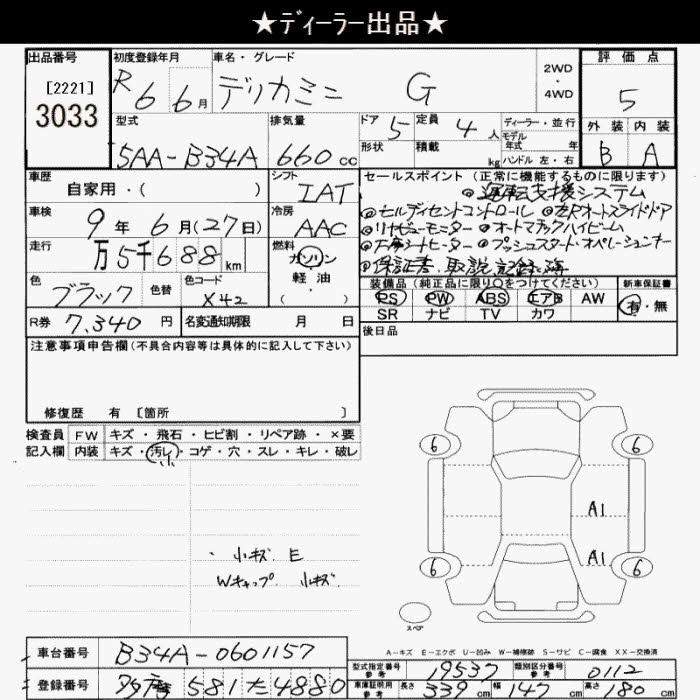 ★ディーラー出品★
出品番号 [2221] 3033
初度登録年月 R6 6月
車名・グレード デリカミニ G
2WD・4WD
評価点 5
外装 B 内装 A
型式 5AA-B34A
排気量 660cc
ドア 5 定員 4人
形状 積載 kg
ディーラー・並行
モデル年式 年
ハンドル 左・右
車歴 自家用・( )
シフト IAT
車検 9年6月(27日)
冷房 AAC
走行 万5千688km
燃料 ガソリン 軽油・( )
色 ブラック 色替 色コード X42
R券 7,340円 名変通知期限 月 日
セールスポイント(正常に機能するものに限ります)
◎運転支援システム
◎ヒルディセントコントロール ◎左Rオートスライドドア
◎リヤビューモニター ◎オートマチックハイビーム
◎シートヒーター ◎プッシュスタート・オペレーションキー
◎保証書、取説、記録
装備品(純正品に限り○をつけてください) 新車保証書
PS PW ABS エアB AW 有・無
SR ナビ TV カワ
後日品
注意事項申告欄(不具合内容等は具体的に記入して下さい)
修復歴 有 [箇所 ]
検査員 FW キズ・飛石・ヒビ割・リペア跡・×要
記入欄 内装 キズ・汚レ・コゲ・穴・スレ・キレ・破レ
小
・小キズ E
Wキャップ 小キズ
6 6
A1
A1
6 6
スペア
A-キズ E-エクボ U-凹み W-補修跡 S-サビ C-腐食 XX-交換済
車台番号 B34A-0601157
登録番号 581 た 4880
型式指定番号 参考 19537 類別区分番号 参考 0112
車庫証明用 参考 長さ 339cm 幅 147cm 高さ 180cm